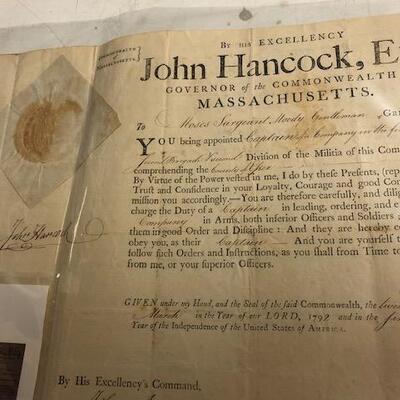 COMMONWEALTH of
MASSACHUSETTS.
BY HIS EXCELLENCY
John Hancock, E
GOVERNOR of the COMMONWEALTH
MASSACHUSETTS.
To Moses Sargeant Moody Gentleman, G
YOU being appointed Captain of a Company in the
Brigade Second Division of the Militia of this Com
comprehending the County of
By Virtue of the Power vested in me, I do by these Presents, (rep
Trust and Confidence in your Loyalty, Courage and good Con
mission you accordingly.—You are therefore carefully, and dilig
charge the Duty of a Captain in leading, ordering, and e
Company in Arms, both inferior Officers and Soldiers;
them in good Order and Discipline: And they are hereby co
obey you, as their Captain And you are yourself t
follow such Orders and Instructions, as you shall from Time to
from me, or your superior Officers.
GIVEN under my Hand, and the Seal of the said Commonwealth, the
March in the Year of our LORD, 1792 and in the
Year of the Independence of the United States of AMERICA.
By His Excellency's Command,
John Hancock